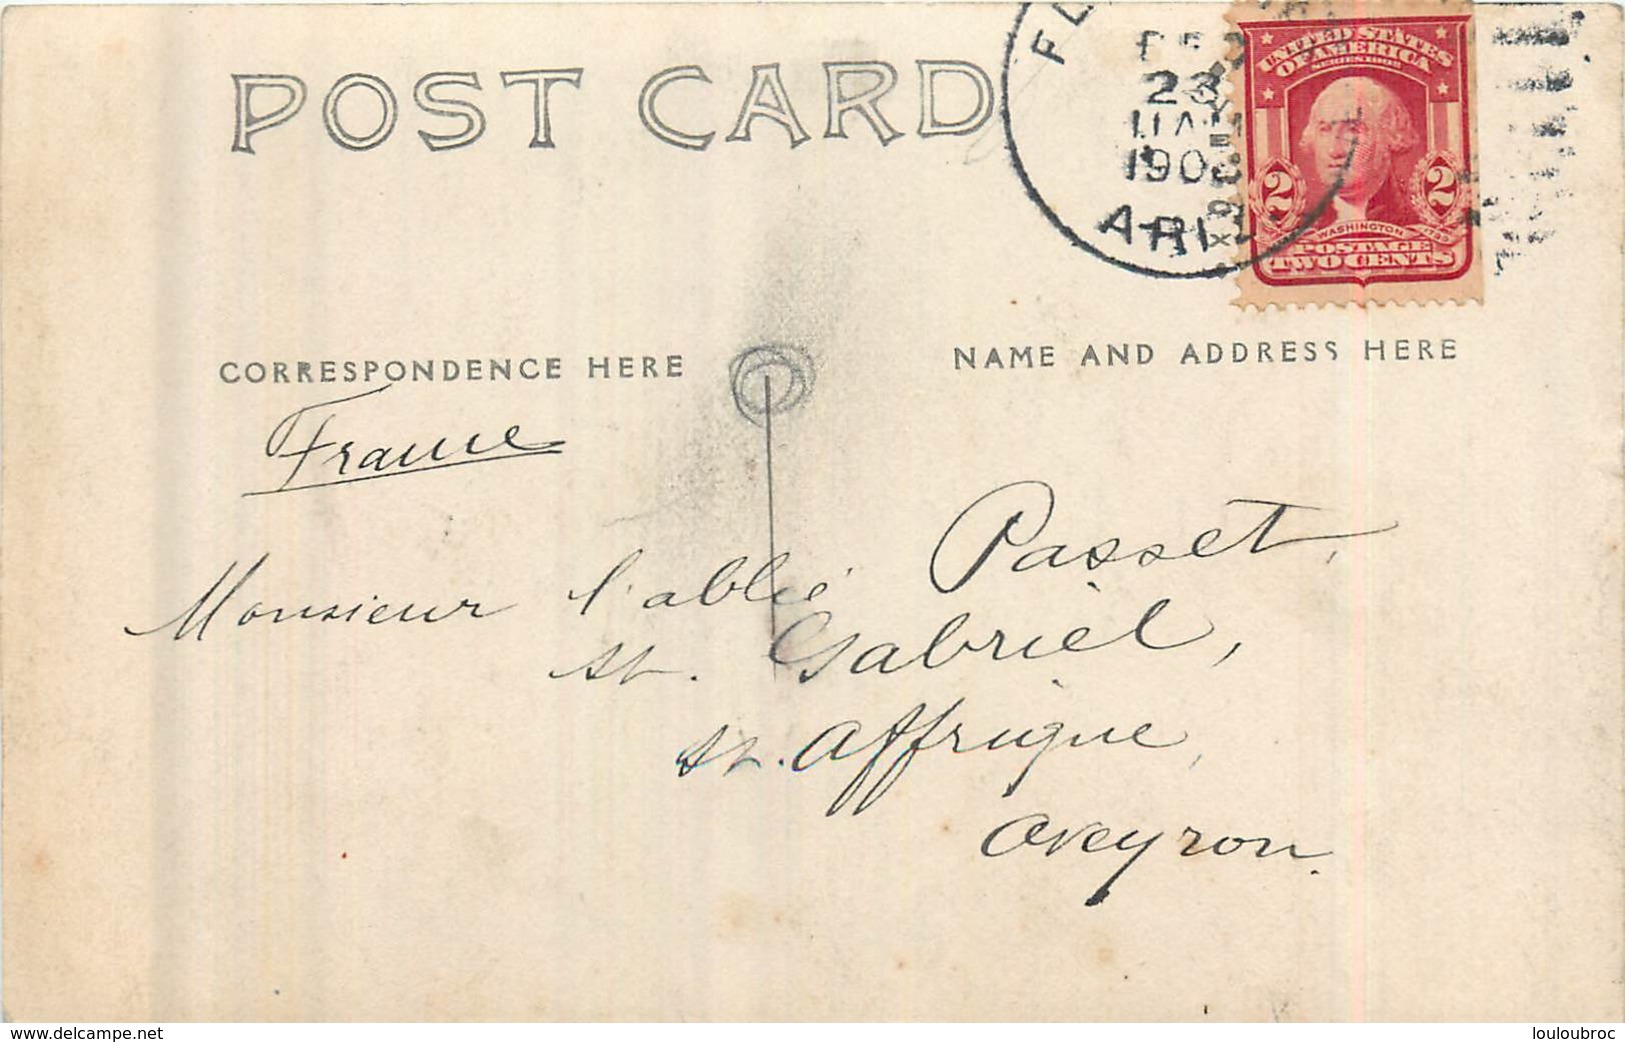 POST CARD
DEC
23
11 AM
190
ARIZ.
UNITED STATES
OF AMERICA
SERIES 1902
2 2
WASHINGTON
POSTAGE
TWO CENTS
CORRESPONDENCE HERE
NAME AND ADDRESS HERE
France
Monsieur l'abbé Passet,
St. Gabriel,
St. Affrique,
Aveyron.
www.delcampe.net
louloubroc